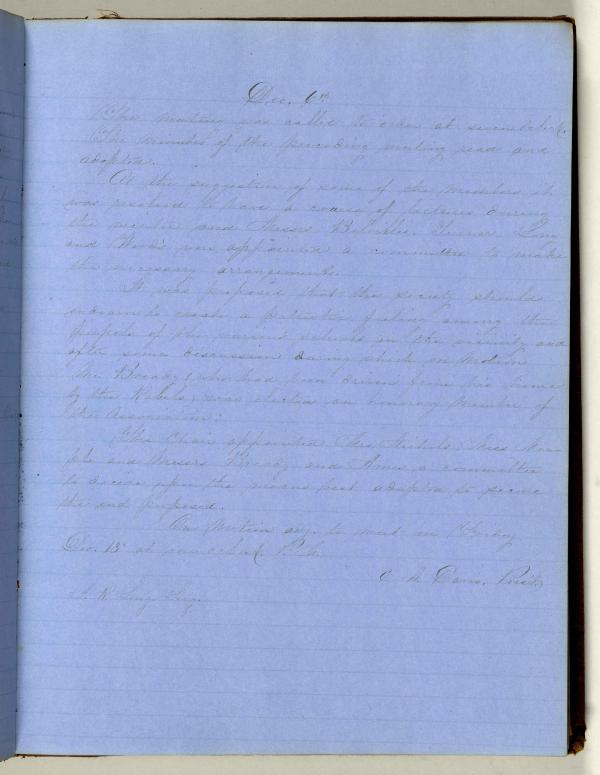 Dec. 6th
The meeting was called to order at seven o'clock.
The minutes of the preceding meeting read and
adopted.
At the suggestion of some of the members it
was resolved to have a course of lectures during
the winter and Messrs
and were appointed a committee to make
the necessary arrangements.
It was proposed that the society should
endeavor to create a patriotic feeling among the
people of the various schools in the vicinity and
after some discussion during which on motion
Mr who had been driven from his home
by the Rebels, was elected an honorary member of
the Association.
The Chair appointed Mrs. Nichols, Miss
and Messrs and a committee
to decide upon the means best adapted to secure
the end proposed.
On Motion adj. to meet on Friday
Dec. 13th at seven o'clock P.M.
Davis, Prest.